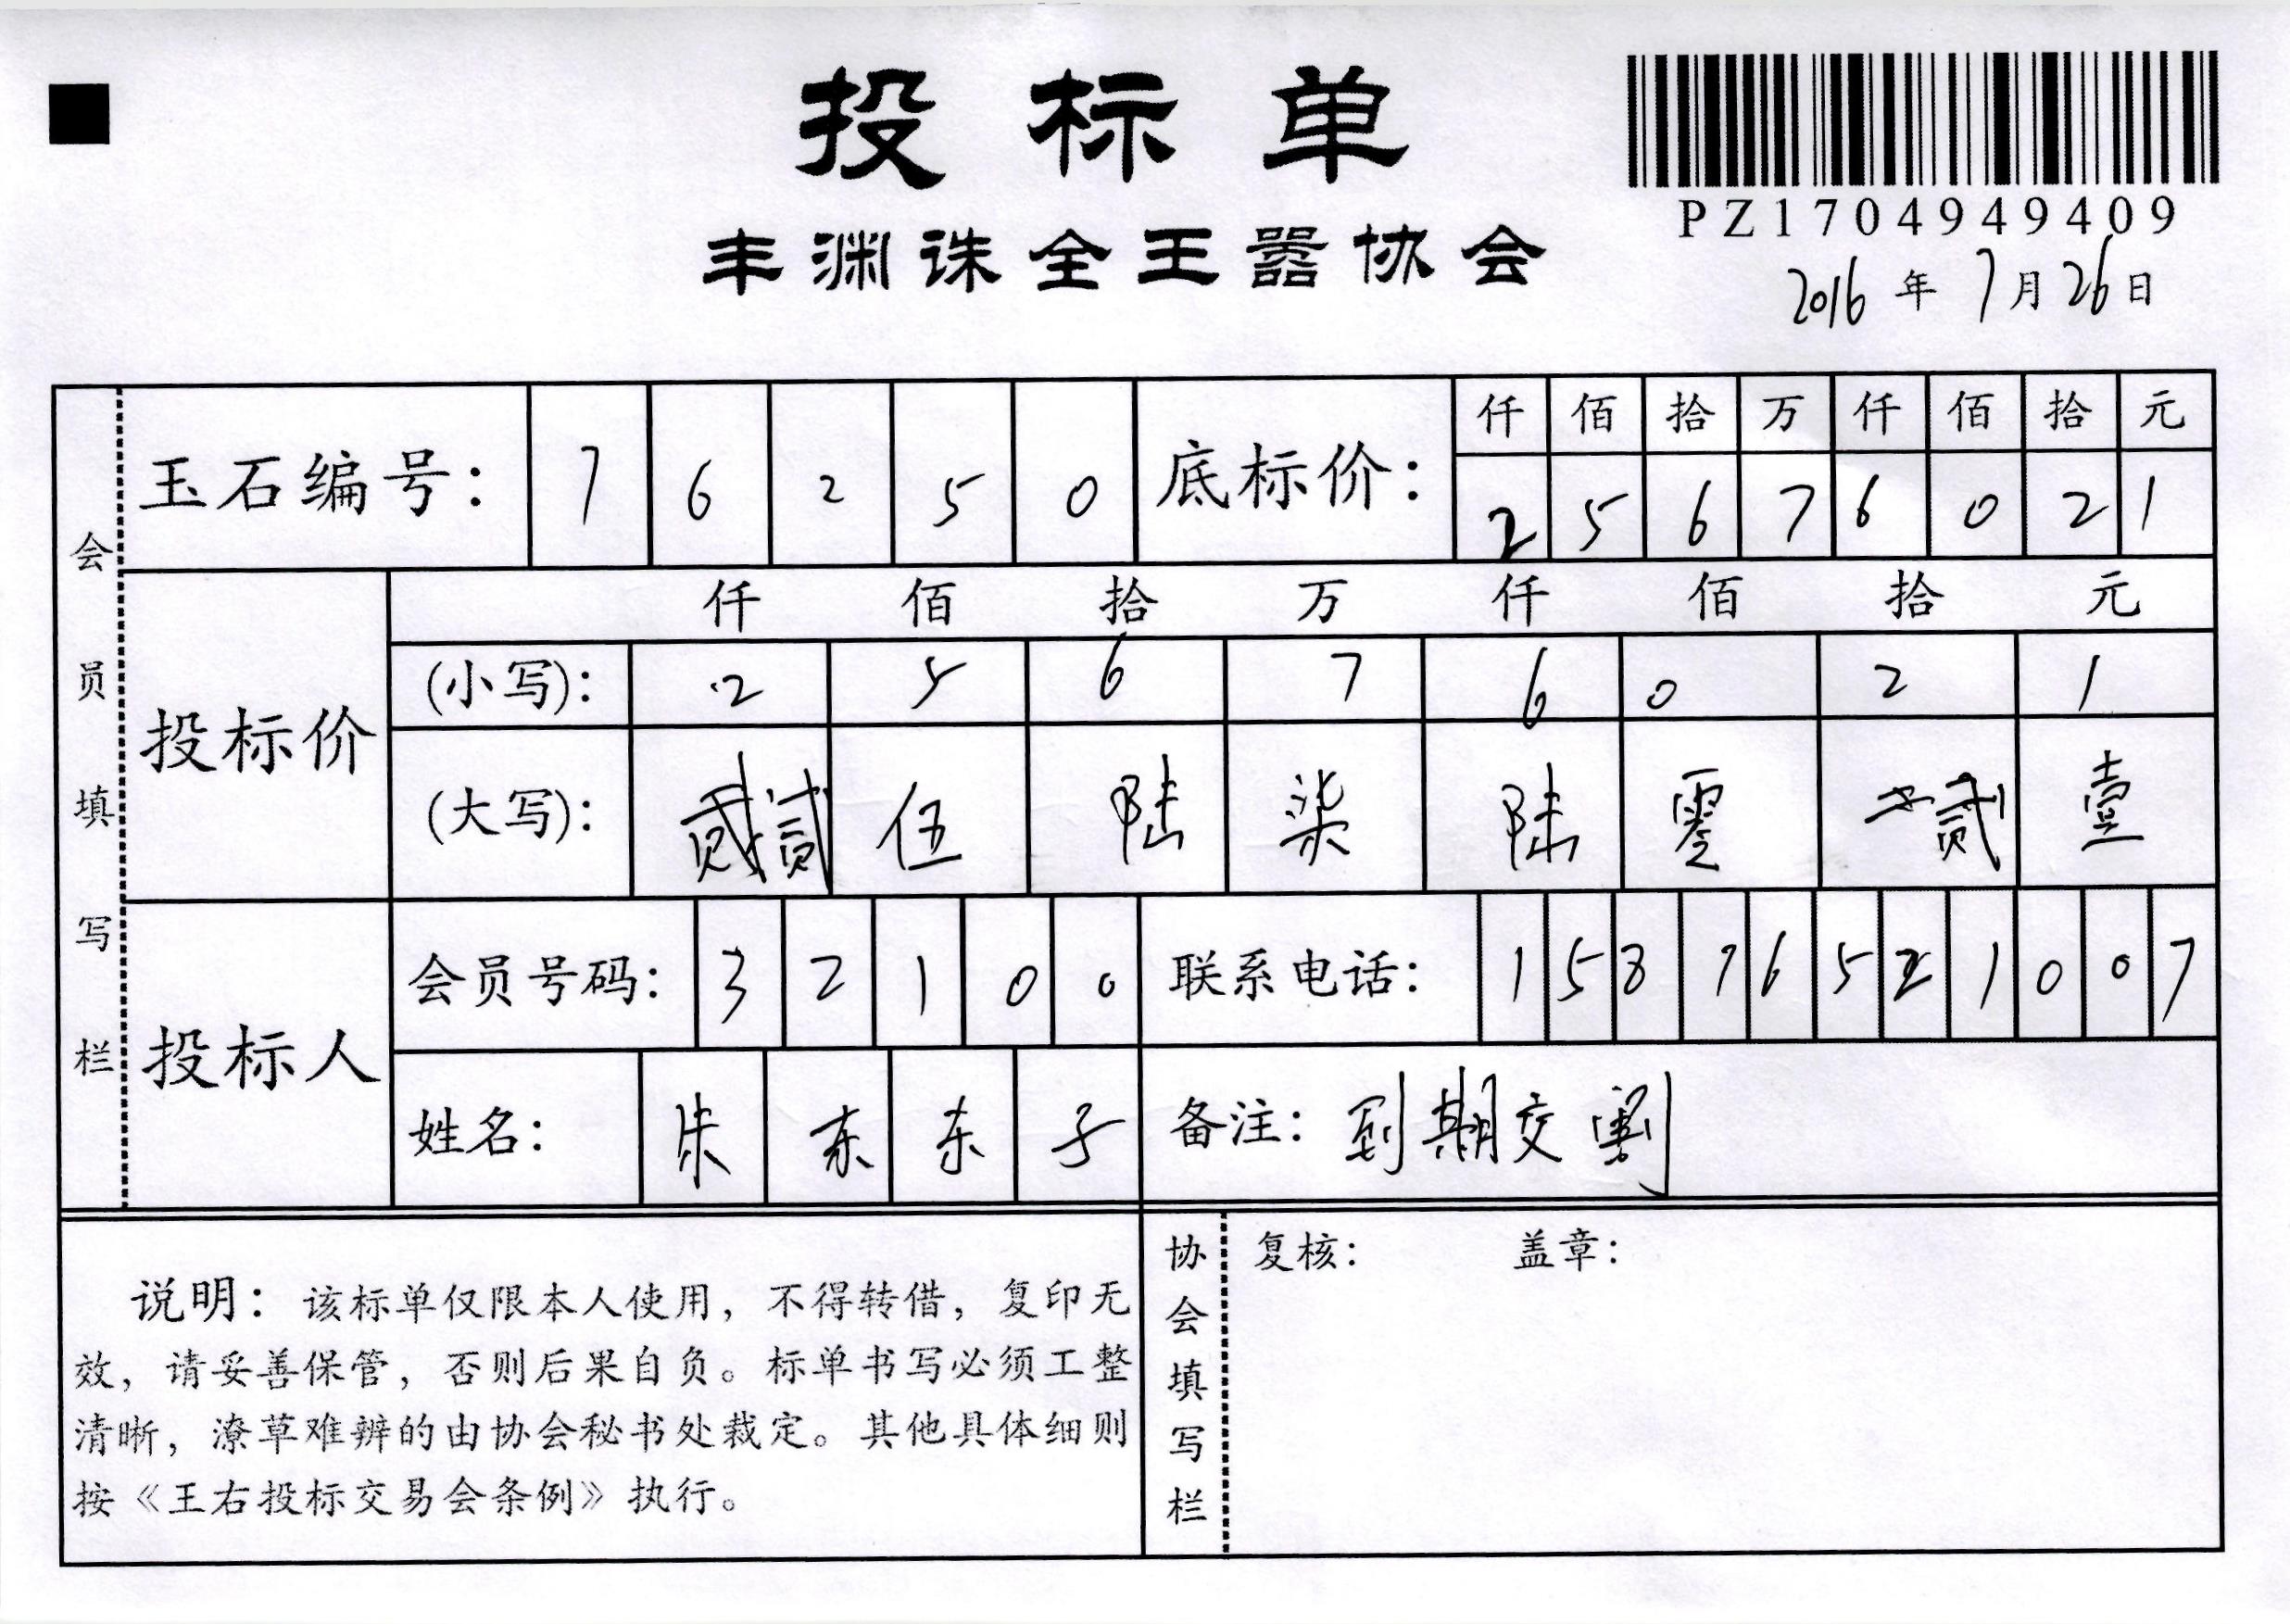 投标单
PZ1704949409
丰渊诛全王嚣协会
2016年7月26日
会员填写栏
玉石编号: 7 6 2 5 0
底标价: 仟 佰 拾 万 仟 佰 拾 元
2 5 6 7 6 0 2 1
投标价
仟 佰 拾 万 仟 佰 拾 元
(小写): 2 5 6 7 6 0 2 1
(大写): 贰贰 伍 陆 柒 陆 零 贰 壹
投标人
会员号码: 3 2 1 0 0
联系电话: 1 5 8 7 6 5 2 1 0 0 7
姓名: 朱 东 东 子
备注: 到期交割
说明: 该标单仅限本人使用, 不得转借, 复印无
效, 请妥善保管, 否则后果自负。标单书写必须工整
清晰, 潦草难辨的由协会秘书处裁定。其他具体细则
按《王右投标交易会条例》执行。
协会填写栏
复核: 盖章: